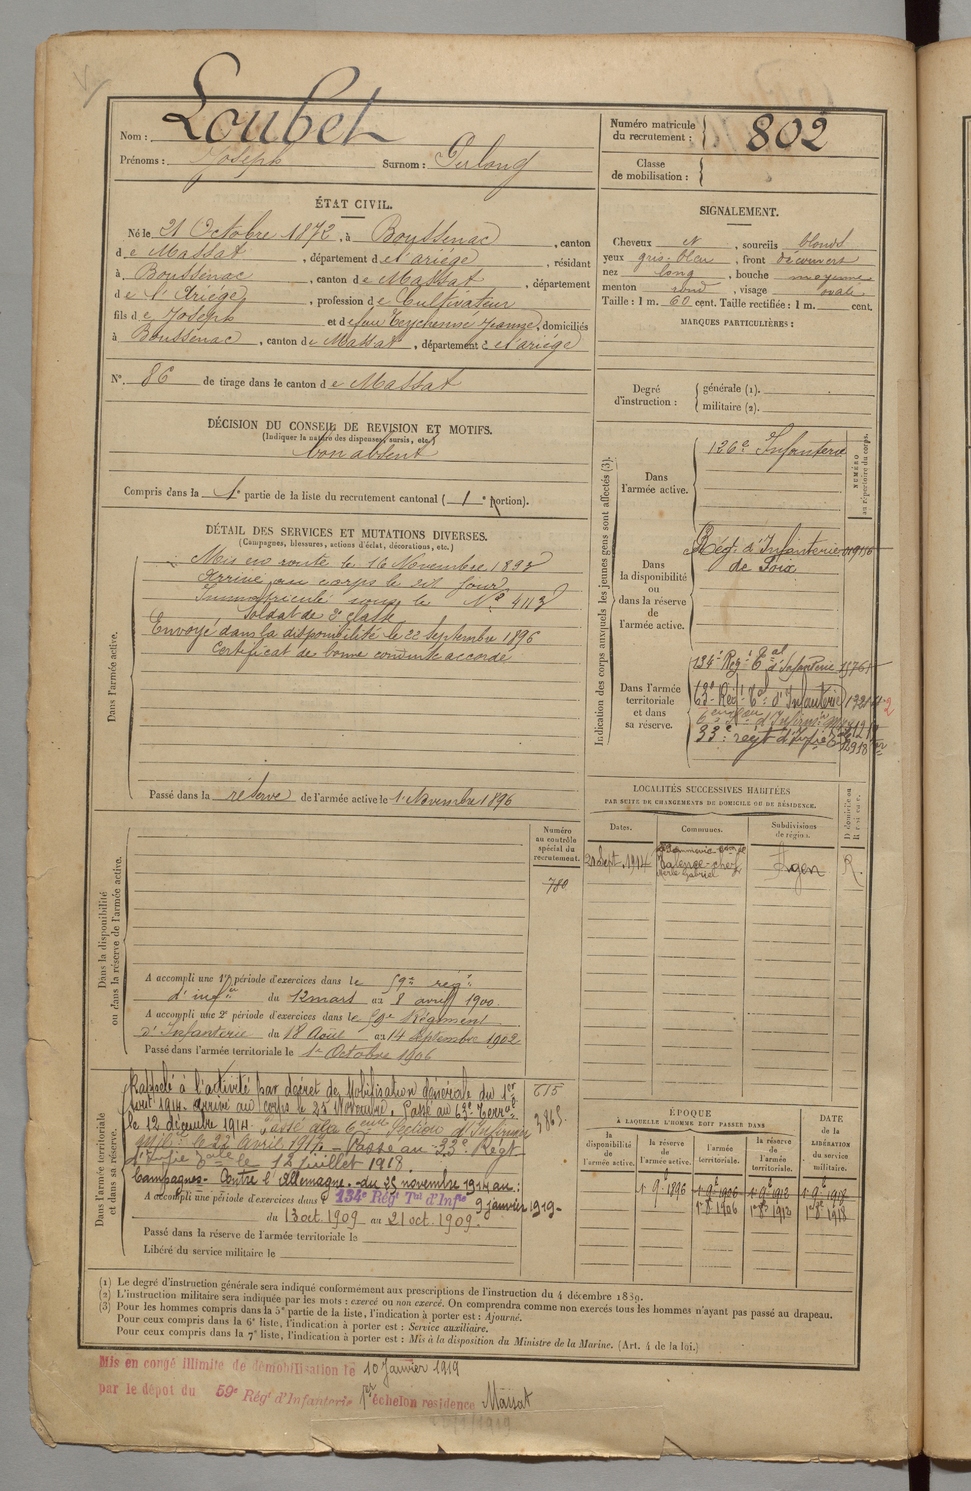 Nom : Loubet
Prénoms : Joseph Surnom : Perlong
ÉTAT CIVIL.
Né le 21 Octobre 1872, à Boussenac, canton
de Massat, département de l'ariége, résidant
à Boussenac, canton de Massat, département
de l'Ariége, profession de Cultivateur
fils de Joseph et de feue Teychenné Jeanne, domiciliés
à Boussenac, canton de Massat, département de l'ariége
N° 86 de tirage dans le canton de Massat
DÉCISION DU CONSEIL DE REVISION ET MOTIFS.
(Indiquer la nature des dispenses, sursis, etc.)
bon absent
Compris dans la 1e partie de la liste du recrutement cantonal (1e portion).
DÉTAIL DES SERVICES ET MUTATIONS DIVERSES.
(Campagnes, blessures, actions d'éclat, décorations, etc.)
Dans l'armée active.
Mis en route le 16 Novembre 1893
Arrivé au corps le dit jour
Immatriculé sous le N° 4113
Soldat de 2e classe
Envoyé dans la disponibilité le 22 Septembre 1896
Certificat de bonne conduite accordé
Passé dans la réserve de l'armée active le 1 Novembre 1896
Dans la disponibilité
ou dans la réserve de l'armée active.
Numéro
au contrôle
spécial du
recrutement.
780
A accompli une 1re période d'exercices dans le 59e rég.t
d'inf.ie du 12 mars au 8 avril 1900.
A accompli une 2e période d'exercices dans le 59e Régiment
d'Infanterie du 18 Août au 14 Septembre 1902
Passé dans l'armée territoriale le 1er Octobre 1906
Dans l'armée territoriale
et dans sa réserve.
Rappelé à l'activité par décret de Mobilisation générale du 1er
Août 1914. Arrivé au corps le 25 Novembre. Passé au 63e Terr.al
le 12 décembre 1914. Passé à la 6eme Section d'Infirmiers
M.res le 22 avril 1917. Passé au 33e Régt
d'Infie T.ale le 12 juillet 1918
Campagnes. Contre l'Allemagne. du 25 novembre 1914 au :
A accompli une période d'exercices dans le 134e Régt Tal d'Infie 9 janvier 1919-
du 13 oct. 1909 au 21 oct. 1909.
615
Passé dans la réserve de l'armée territoriale le
Libéré du service militaire le
Numéro matricule
du recrutement : 802
Classe
de mobilisation :
SIGNALEMENT.
Cheveux et, sourcils blonds
yeux gris-bleu, front découvert
nez long, bouche moyenne
menton rond, visage ovale
Taille : 1 m. 60 cent. Taille rectifiée : 1 m. cent.
MARQUES PARTICULIÈRES :
Degré
d'instruction :
générale (1).
militaire (2).
Indication des corps auxquels les jeunes gens sont affectés (3).
NUMÉRO
au répertoire du corps.
Dans
l'armée active.
126e Infanterie
Dans
la disponibilité
ou
dans la réserve
de
l'armée active.
Rég.t d'Infanterie
de Foix
Dans l'armée
territoriale
et dans
sa réserve.
134e Rég.t T.al d'Infanterie
63e Rég.t T.al d'Infanterie
33e régt d'Infie T.ale
LOCALITÉS SUCCESSIVES HABITÉES
PAR SUITE DE CHANGEMENTS DE DOMICILE OU DE RÉSIDENCE.
Dates.
Communes.
Subdivisions
de région.
Domicile ou
Résidence.
Sept. 1914
Valence
Agen
R.
ÉPOQUE
À LAQUELLE L'HOMME DOIT PASSER DANS
DATE
de la
LIBÉRATION
du service
militaire.
la
disponibilité
de
l'armée active.
la réserve
de
l'armée active.
l'armée
territoriale.
la réserve
de
l'armée
territoriale.
1 9e 1896 1 9e 1906 1 9e 1912 1 9e 1918
1 8e 1906 1 8e 1913 1 8e 1918
(1) Le degré d'instruction générale sera indiqué conformément aux prescriptions de l'instruction du 4 décembre 1889.
(2) L'instruction militaire sera indiquée par les mots : exercé ou non exercé. On comprendra comme non exercés tous les hommes n'ayant pas passé au drapeau.
(3) Pour les hommes compris dans la 5e partie de la liste, l'indication à porter est : Ajourné.
Pour ceux compris dans la 6e liste, l'indication à porter est : Service auxiliaire.
Pour ceux compris dans la 7e liste, l'indication à porter est : Mis à la disposition du Ministre de la Marine. (Art. 4 de la loi.)
Mis en congé illimité de démobilisation le 10 Janvier 1919
par le dépôt du 59e Régt d'Infanterie 1er échelon residence Massat